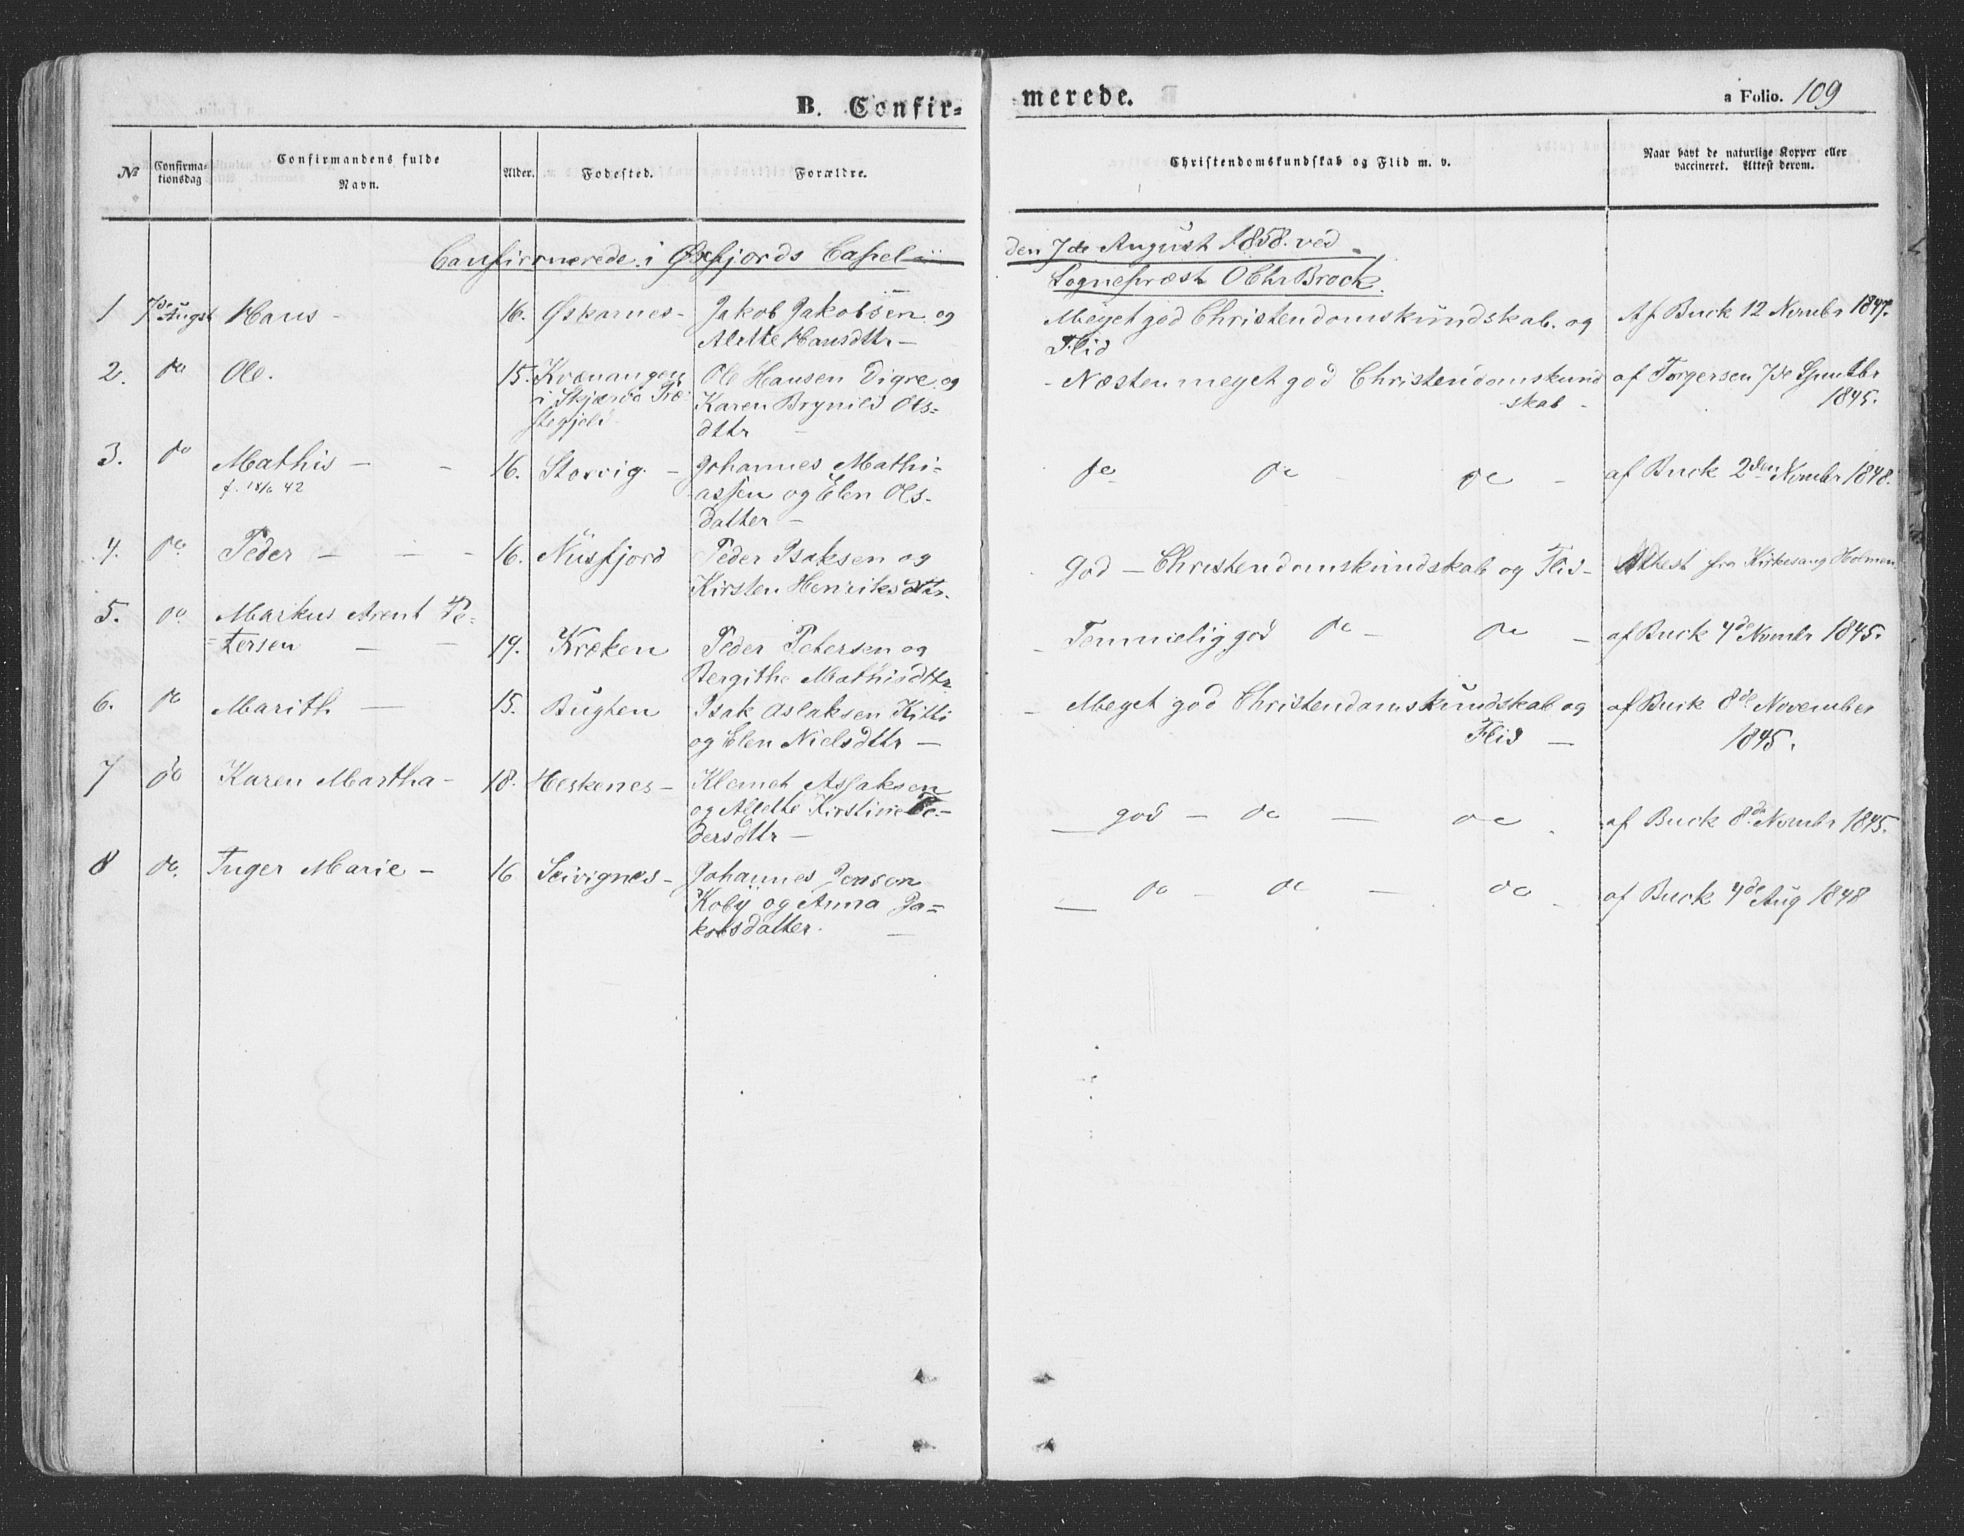 B. Confir=
merede.
a Folio. 109
№
Confirma-
tionsdag
Confirmandens fulde
Navn.
Alder.
Fodested.
Forældre.
Christendomskundskab og Flid m. v.
Naar havt de naturlige Kopper eller
vaccineret. Attest derom.
Confirmerede i Øxfjords Capel
den 7de August 1858. ved
Sognepræst O Chr Brock.
1 7de Augst Hans - 16. Øskarnes- Jakob Jakobsen og Meget god Christendomskundskab og Af Buck 12 Novmbr 1847.
Alette Hansdttr - Flid
2. do Ole. 15. Kvænangen Ole Hansen Digre og - Næsten meget god Christendomskund af Torgersen 7de
i Skjervø Præ Karen Brynild Ols- skab - 1845.
stegjeld. dttr
3. do Mathis - - 16. Storvig. - Johannes Mathi- do do - do - af Buck 2den Novmbr 1848.
f. 18/6 42 assen og Elen Ols-
datter -
4. do Peder - - - 16. Nusfjord Peder Isaksen og God - Christendomskundskab og Flid- Attest fra Kirkesang Holmen
Kirsten Henriksdttr.
5. do Markus Arent Pe-
=tersen - - 19. Kræken Peder Petersen og - Temmelig god do - do - af Buck 4de Novmbr 1845.
Bergithe Mathisdttr
6. do Marith - 15. Bugten Isak Aslaksen Kitti - Meget god Christendomskundskab og af Buck 8de November
og Elen Nielsdttr - Flid - 1845.
7 do Karen Martha - 18. Heskenes - Klemet Aslaksen
og Alette Kirstine Pe- - god - do - do . af Buck 8de Novmbr 1845.
dersdttr -
8 do. Inger Marie - 16 Seivignes - Johannes Jensen - do - do - do - af Buck 4de Aug 1848
Koby og Anna Ja=
kobsdatter. -